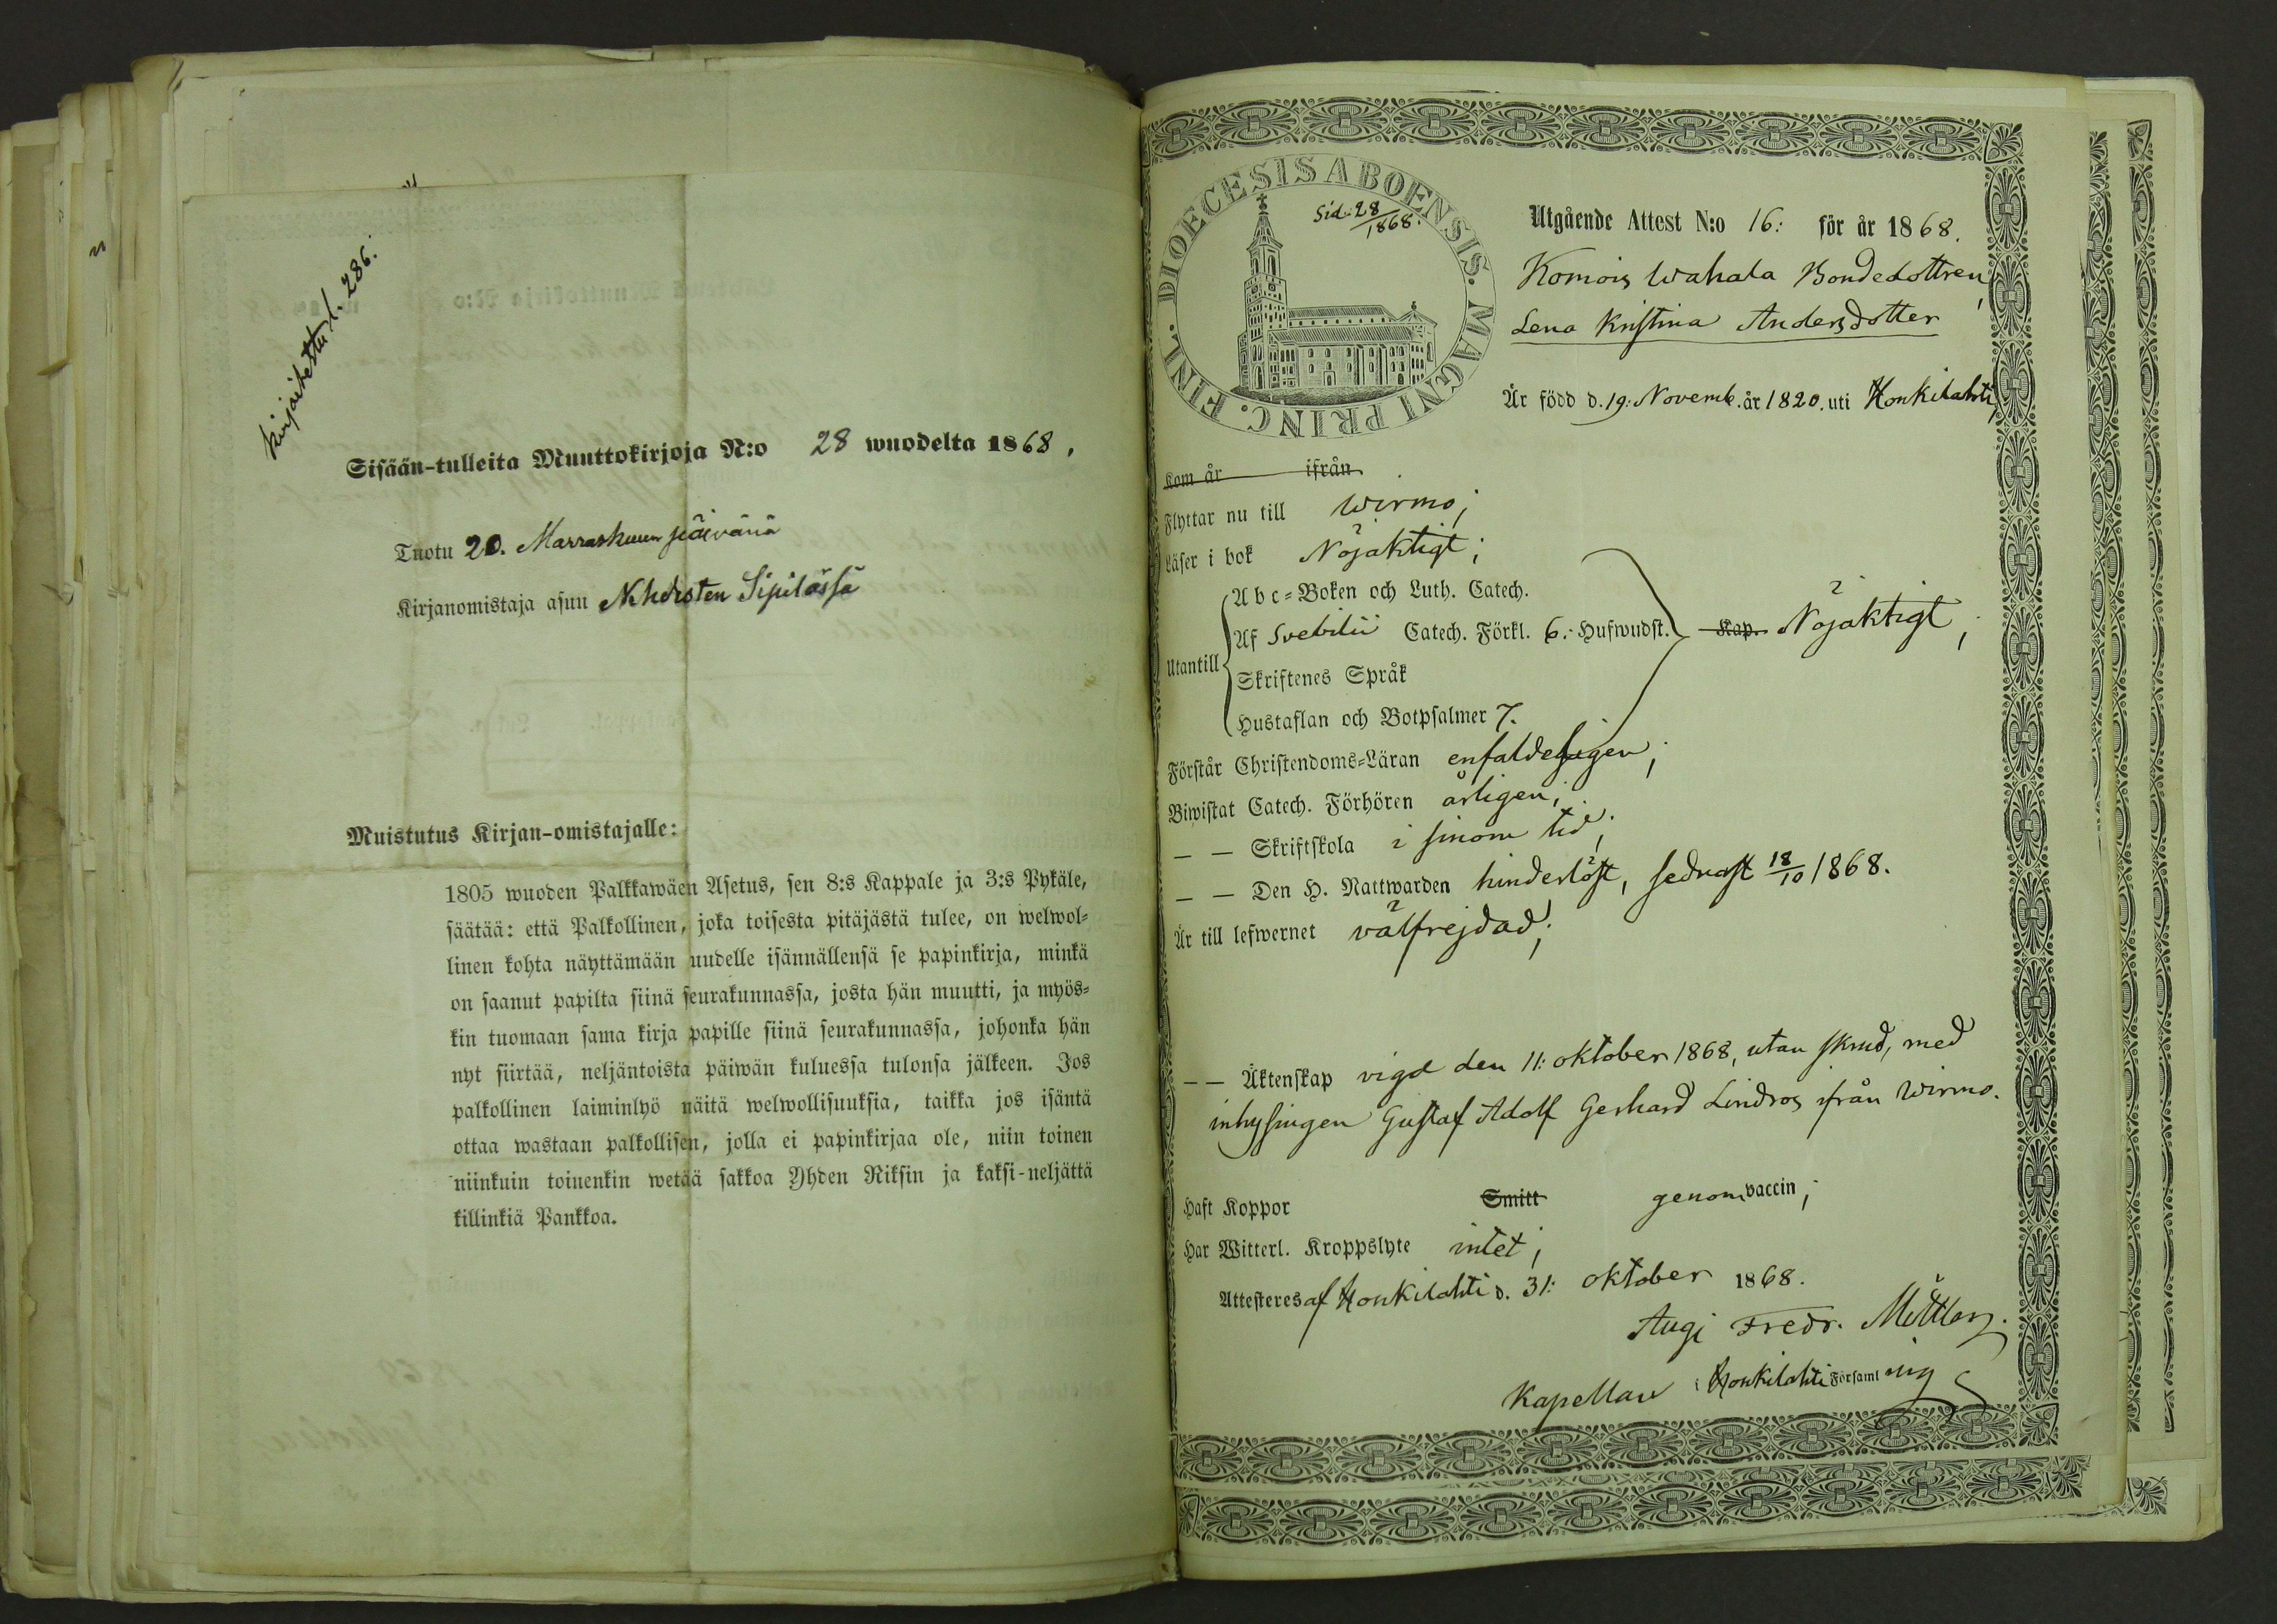 kirjoitettu l. 286.
Sisään-tulleita Muuttokirjoja N:o 28 wuodelta 1868,
Tuotu 20. Marraskuun päivänä
Kirjanomistaja asuu Nehdosten Sipilässä
Muistutus Kirjan-omistajalle:
1805 wuoden Palkkawäen Asetus, sen 8:s Kappale ja 3:s Pykäle,
säätää: että Palkollinen, joka toisesta pitäjästä tulee, on welwol-
linen kohta näyttämään uudelle isännällensä se papinkirja, minkä
on saanut papilta siinä seurakunnassa, josta hän muutti, ja myös-
kin tuomaan sama kirja papille siinä seurakunnassa, johonka hän
nyt siirtää, neljäntoista päiwän kuluessa tulonsa jälkeen. Jos
palkollinen laiminlyö näitä welwollisuuksia, taikka jos isäntä
ottaa wastaan palkollisen, jolla ei papinkirjaa ole, niin toinen
niinkuin toinenkin wetää sakkoa Yhden Riksin ja kaksi-neljättä
killinkiä Pankkoa.
DIOECESIS ABOENSIS. MAGNI PRINC. FINL.
Sid. 28/1868.
Utgående Attest N:o 16: för år 1868.
Komois Wahala Bondedottren,
Lena Kristina Andersdotter
Är född d. 19: Novemb. år 1820. uti Honkilahti,
Kom år ifrån
Flyttar nu till Wirmo;
Läser i bok Nöjaktigt;
Utantill
Abc-Boken och Luth. Catech.
Af Svebilii Catech. Förkl. 6: Hufwudst. Kap. Nöjaktigt;
Skriftenes Språk
Hustaflan och Botpsalmer 7.
Förstår Christendoms-Läran enfaldeligen;
Biwistat Catech. Förhören årligen;
— — Skriftskola i sinom tid;
— — Den H. Nattwarden hinderlöst, sednast 18/10 1868.
Är till lefwernet välfrejdad;
— — Äktenskap vigd den 11: oktober 1868, utan skrud, med
inhysingen Gustaf Adolf Gerhard Lindros ifrån Wirmo.
Haft Koppor Smitt genom vaccin;
Har Witterl. Kroppslyte intet;
Attesteres af Honkilahti d. 31: oktober 1868.
Fredr.
Kapellan i Honkilahti Församling